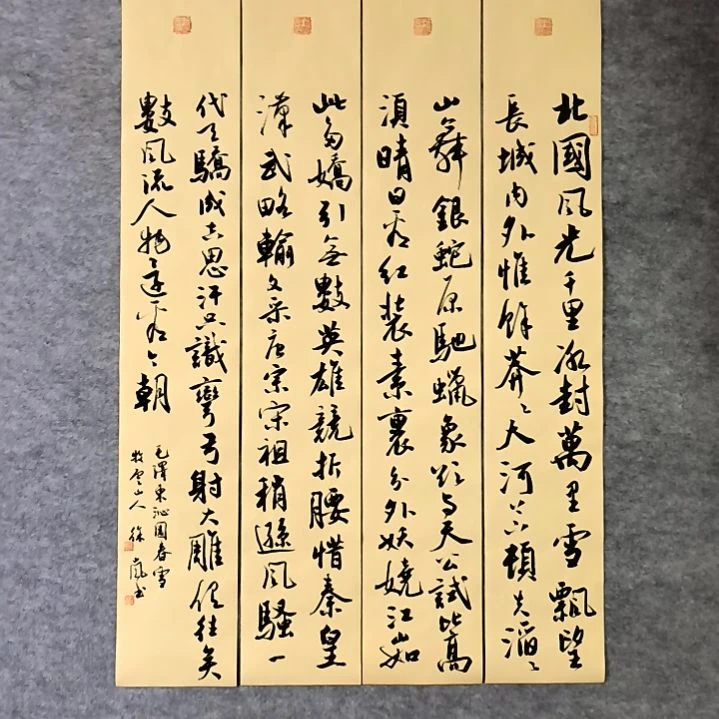 北國风光千里冰封萬里雪飄望
長城内外惟餘莽〻大河上下頓失滔〻
山舞銀蛇原馳蠟象欲与天公試比高
須晴日看红裝素裹分外妖嬈江山如
此多嬌引无數英雄競折腰惜秦皇
漢武略輸文采唐宗宋祖稍遜风騷一
代天驕成吉思汗只識彎弓射大雕俱往矣
數风流人物還看今朝
毛澤東沁園春雪
牧雲山人 徐嵐书